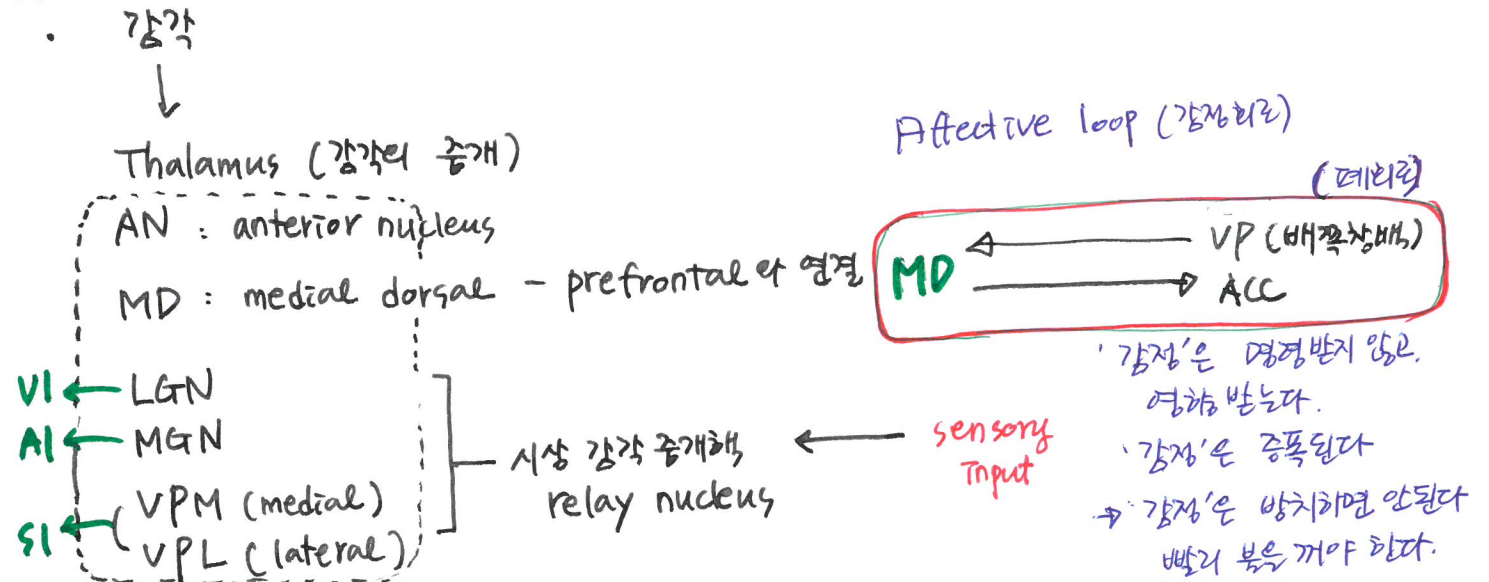 · 감각
Thalamus (감각의 중개)
AN : anterior nucleus
MD : medial dorsal - prefrontal와 연결
V1 ← LGN
A1 ← MGN
S1 ← VPM (medial)
VPL (lateral)
시상 감각 중개핵
relay nucleus
sensory
Input
Affective loop (감정회로)
(폐회로)
MD
VP (배쪽창백)
ACC
'감정'은 명령받지 않고.
영향받는다.
'감정'은 증폭된다
→ '감정'은 방치하면 안된다
빨리 불을 꺼야 한다.